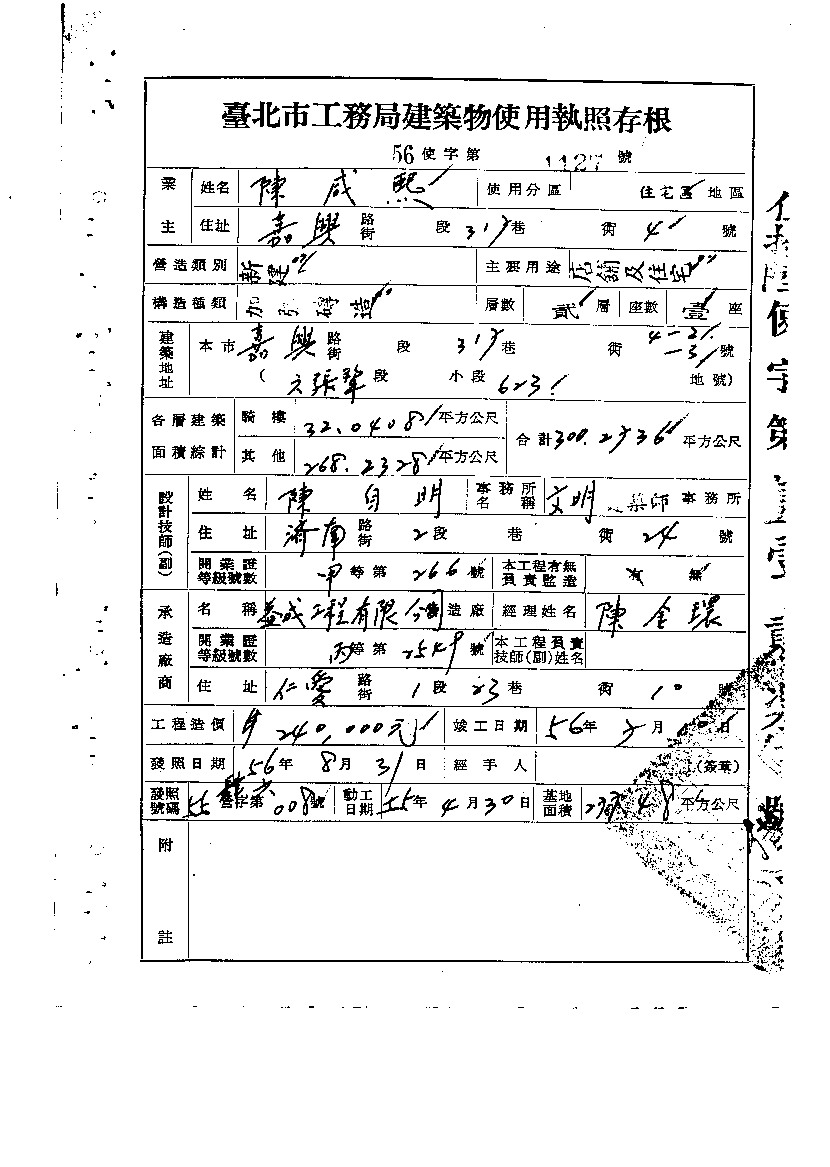 臺北市工務局建築物使用執照存根
56使字第 1127 號
業主 姓名 陳咸熙 使用分區 住宅區 地區
住址 嘉興 路街 段 317 巷 衖 4 號
營造類別 新建 主要用途 店舖及住宅
構造種類 加強磚造 層數 貳 層 座數 壹 座
建築地址 本市 嘉興 路街 段 317 巷 衖 4-2 -3 號
(六張犂 段 小段 623 地號)
各層建築面積綜計 騎樓 32.0408 平方公尺 合計 300.2736 平方公尺
其他 268.2328 平方公尺
設計技師(副) 姓名 陳自明 事務所名稱 文明 築師 事務所
住址 濟南 路街 2 段 巷 衖 24 號
開業證等級號數 甲 等第 266 號 本工程有無負責監造 有 無
承造廠商 名稱 益成工程有限公司 造廠 經理姓名 陳金環
開業證等級號數 丙 等第 2549 號 本工程負責技師(副)姓名
住址 仁愛 路街 1 段 23 巷 衖 10 號
工程造價 240,000元 竣工日期 56年 7月 日
發照日期 56年 8月 31日 經手人 (簽章)
發照號碼 55 營字第 008 號 動工日期 55年 4月 30日 基地面積 48 平方公尺
附註
使字第